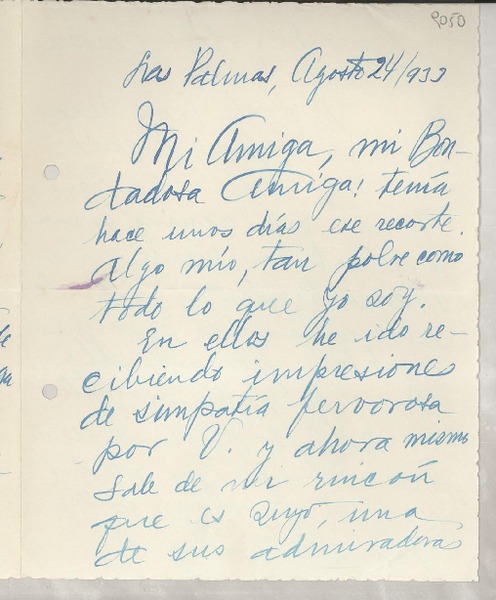 9050
Las Palmas, Agosto 24/933
Mi Amiga, mi Bon-
dadosa Amiga! tenía
hace unos días ese recorte.
Algo mío, tan pobre como
todo lo que yo soy.
En ellos he ido re-
cibiendo impresiones
de simpatía fervorosa
por V. y ahora mismo
sale de mi rincón
que es suyo, una
de sus admiradoras